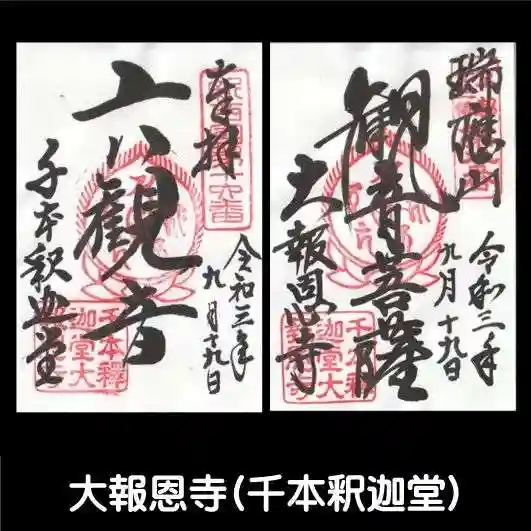 奉拝
六観音
千本釈迦堂
令和三年
九月十九日
千本釋
迦堂大
瑞應山
観音菩薩
大報恩寺
令和三年
九月十九日
千本釋
迦堂大
報恩寺
大報恩寺(千本釈迦堂)